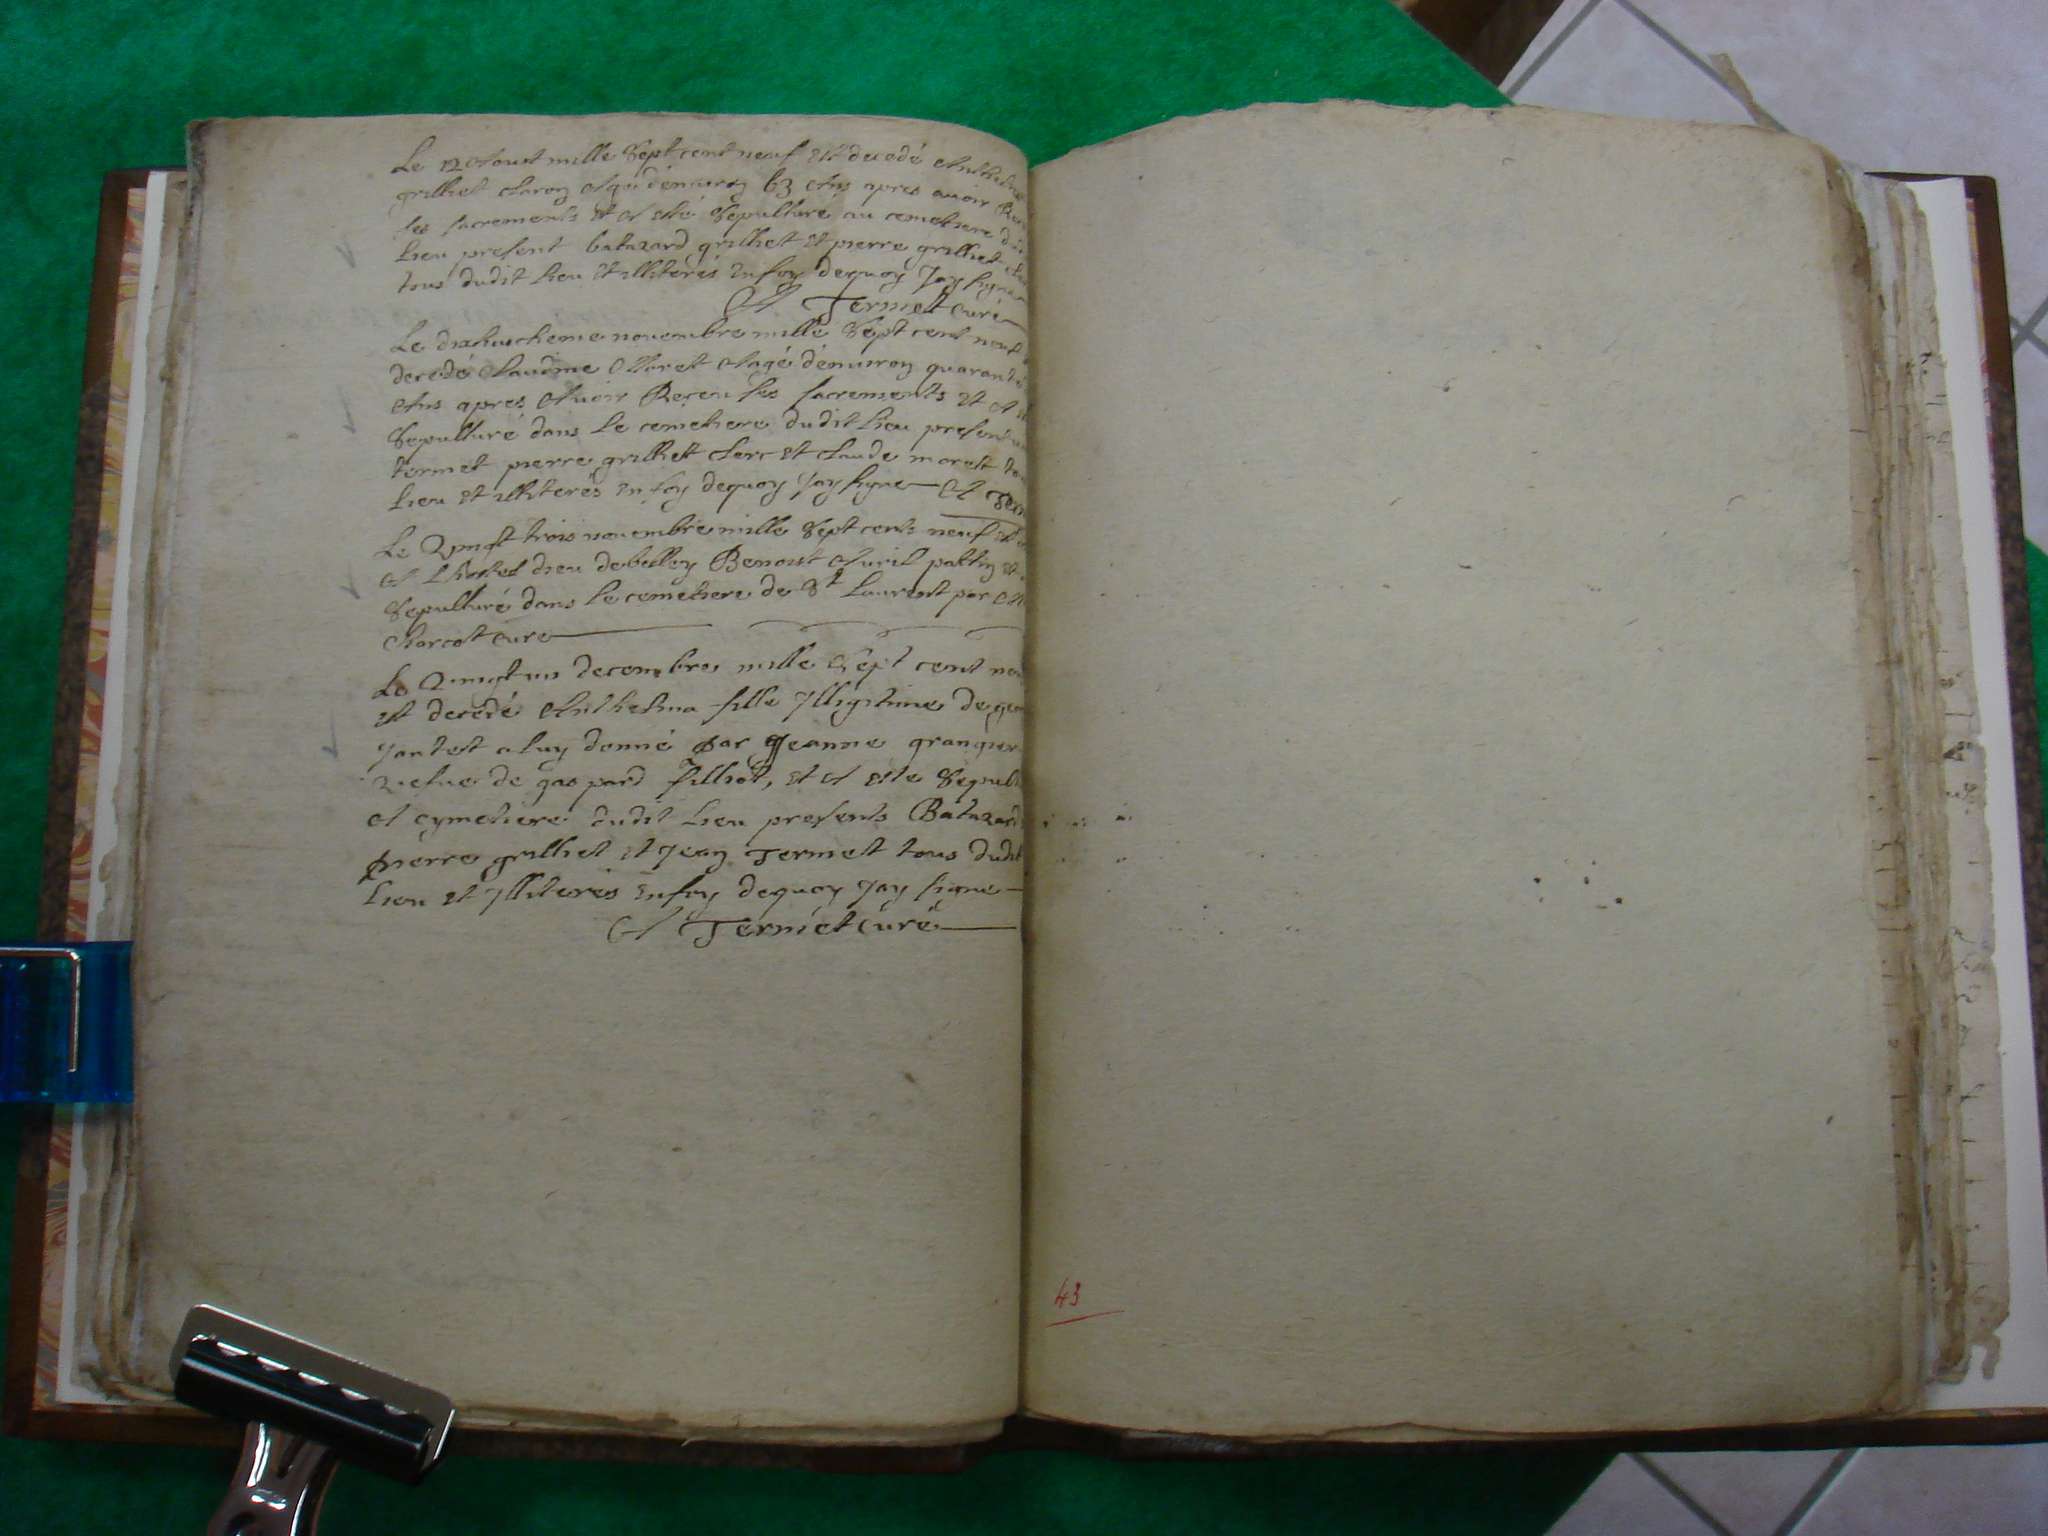 Le 12 Aoust mille Sept cent neuf Est decedé
grilliet Agé denviron 63 Ans apres avoir
les sacrements Et A Esté Sepulturé au cemetiere
Lieu present batazard grilliet Et pierre grilliet
tous dudit Lieu Et illiterés En foy dequoy Jay signé
A Termet Curé
Le dixhuictieme novembre mille Sept cent neuf
decedé Claudine Moret Agé denviron quarante
Ans apres Avoir Receu les sacrements Et A
Sepulturé dans Le cemetiere dudit Lieu present
termet pierre grilliet clerc Et claude moret
Lieu Et illiterés En foy dequoy Jay signe A
Le Vingt trois novembre mille Sept cents neuf
A Lhostel dieu debelley Benoist Avril pattin
Sepulturé dans Le cemetiere de St Laurent par
Charcot cure
Le Vingt un decembre mille Sept cent
Et decedé Anthelma fille Illigitime de
Jantet a luy donné par Jeanne
Vefve de gaspard filliot, Et A Esté
A cymetiere dudit Lieu presents Batazard
pierre grilliet Et Jean Termet tous dudit
Lieu Et Illiterés En foy dequoy Jay signe
A Termet Curé
43